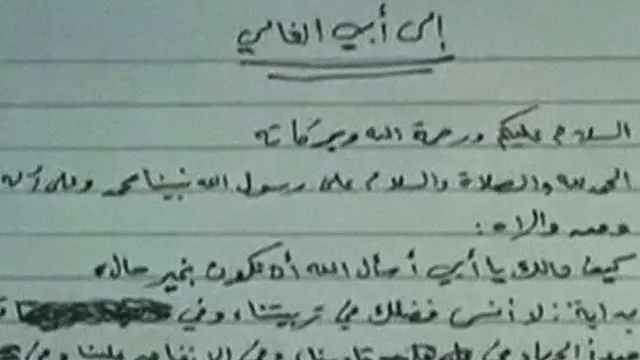 إلى أبي الغالي
السلام عليكم ورحمة الله وبركاته
الحمد لله والصلاة والسلام على رسول الله نبينا محمد وعلى آله
ومن والاه:
كيف حالك يا أبي أسأل الله أن تكون بخير حال،
بداية: لا أنسى فضلك في تربيتنا، وفي